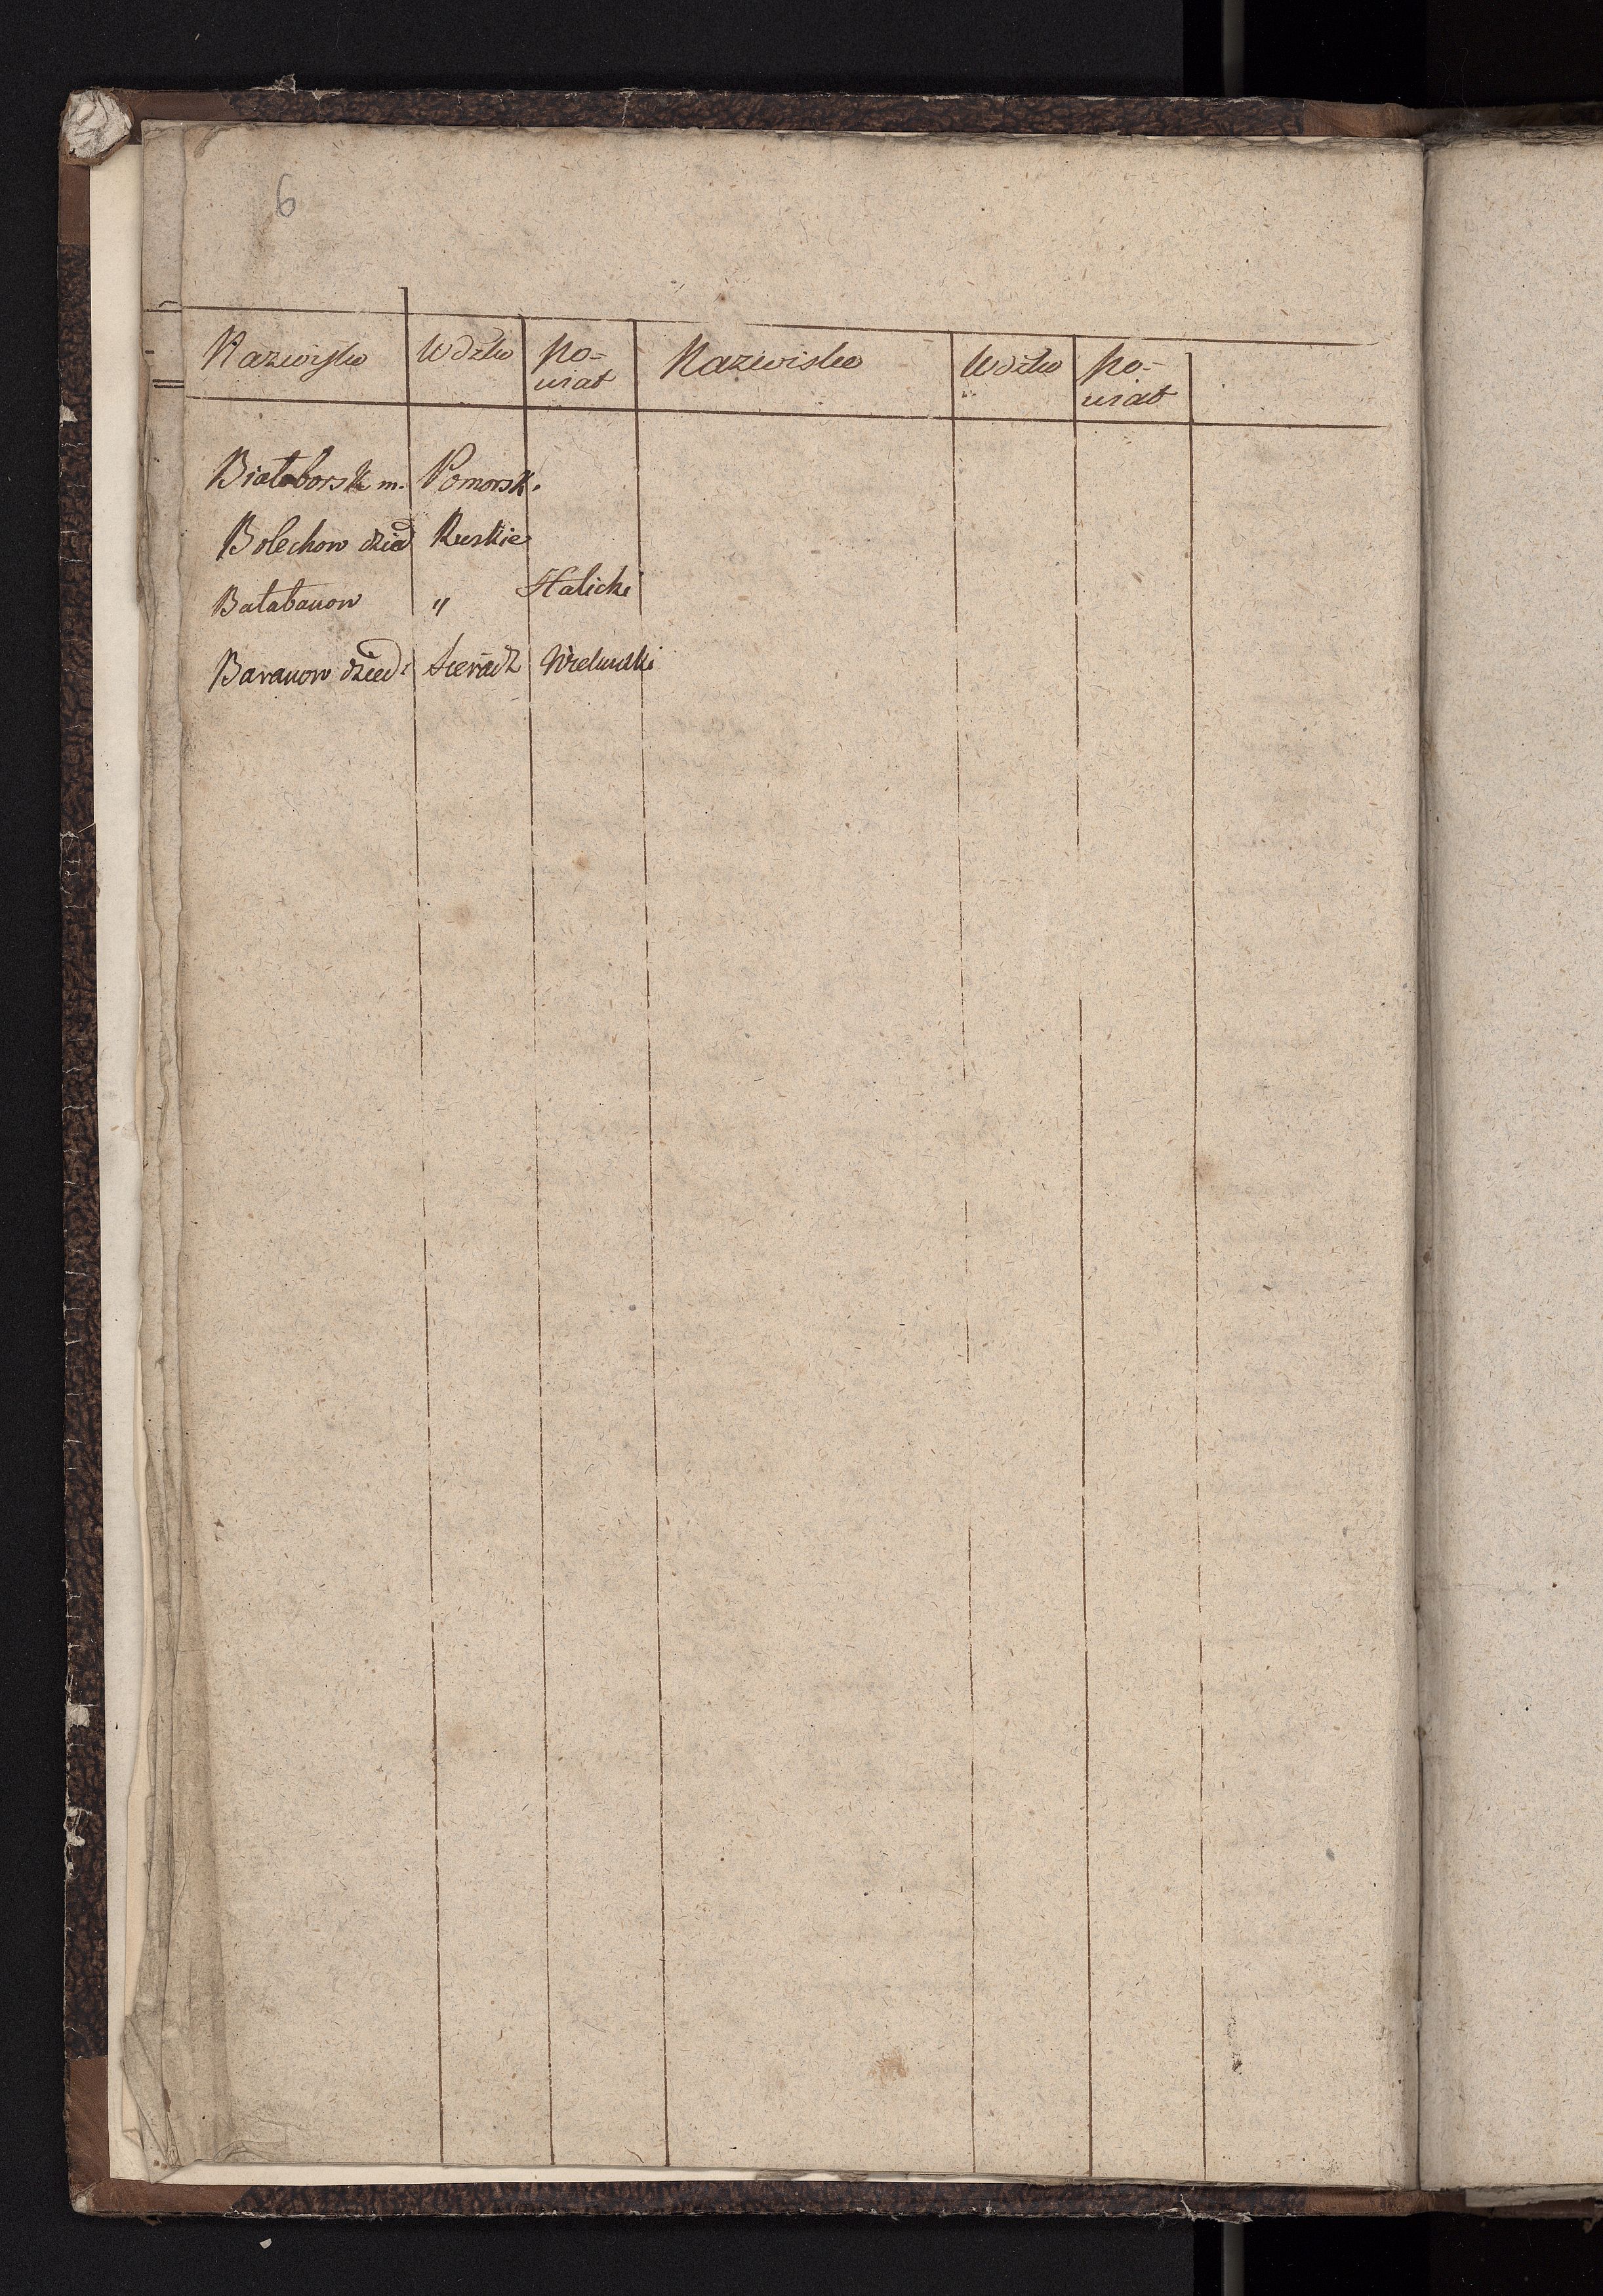 6
Nazwisko Wdztwo Po= Nazwisko Wdztwo Po=
wiat wiat
Białoborsk m. Pomorsk.
Bolechow dzied Ruskie
Bałabanow " Halicki
Baranow dzied: Sieradz Wieluński